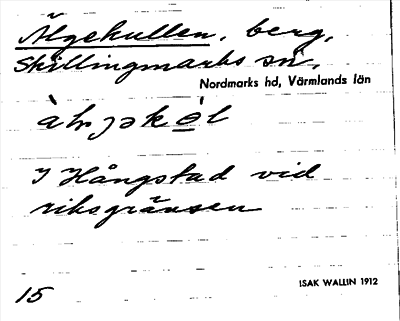 Älgekullen, berg,
Skillingmarks sn,
Nordmarks hd, Värmlands län
I Hångstad vid
riksgränsen
ISAK WALLIN 1912
15